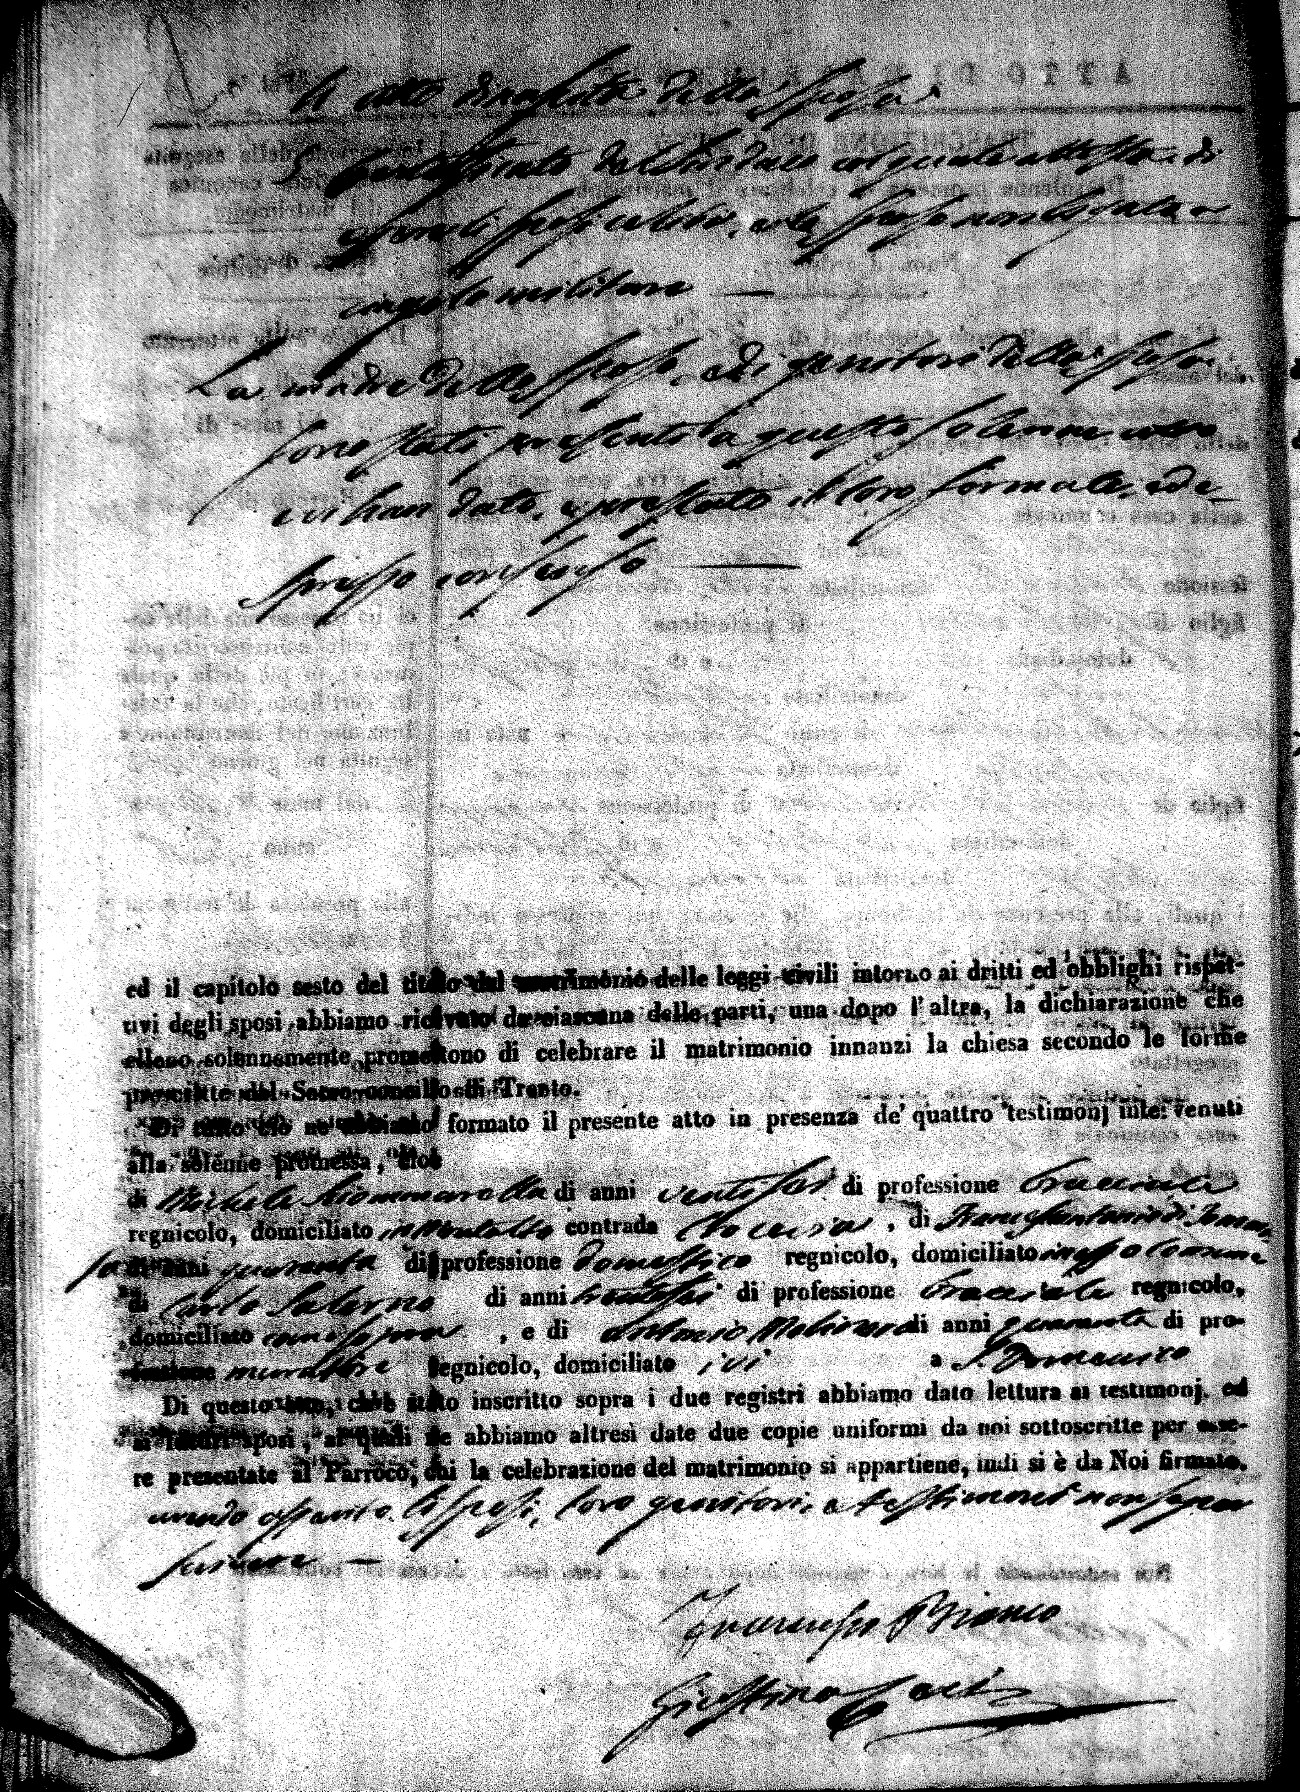 4 atto di nascita della sposa.
5 Certificato del Sindaco col quale attesta di
essere li sposi celibi, e lo sposo non ligato a
cingolo militare —
La madre dello sposo, e di genitori della sposa
sono stati presenti a questo solenne atto
e vi han dato, e prestato il loro formale, ed e-
spresso consenso —
ed il capitolo sesto del titolo del matrimonio delle leggi civili intorno ai dritti ed obblighi rispet-
tivi degli sposi abbiamo ricevuto da ciascuna delle parti, una dopo l'altra, la dichiarazione che
elleno solennemente promettono di celebrare il matrimonio innanzi la chiesa secondo le forme
prescritte dal Sacro concilio di Trento.
Di tutto ciò ne abbiamo formato il presente atto in presenza de' quattro testimonj intervenuti
alla solenne promessa, cioè
di Michele di anni ventisei di professione bracciale
regnicolo, domiciliato in Montalto contrada , di Francescantonio di
di anni quaranta di professione domestico regnicolo, domiciliato in esso Comune
di Carlo Salerno di anni trentasei di professione bracciale regnicolo,
domiciliato come sopra , e di Antonio Molinaro di anni quaranta di pro-
fessione muratore regnicolo, domiciliato ivi a S. Domenico
Di questo atto, ch'è stato inscritto sopra i due registri abbiamo dato lettura ai testimonj. ed
ai futuri sposi, ai quali ne abbiamo altresì date due copie uniformi da noi sottoscritte per esse-
re presentate al Parroco, cui la celebrazione del matrimonio si appartiene, indi si è da Noi firmato,
avendo asserito li sposi, loro genitori, e testimoni non saper
scrivere —
Francesco Bianco
Giustino